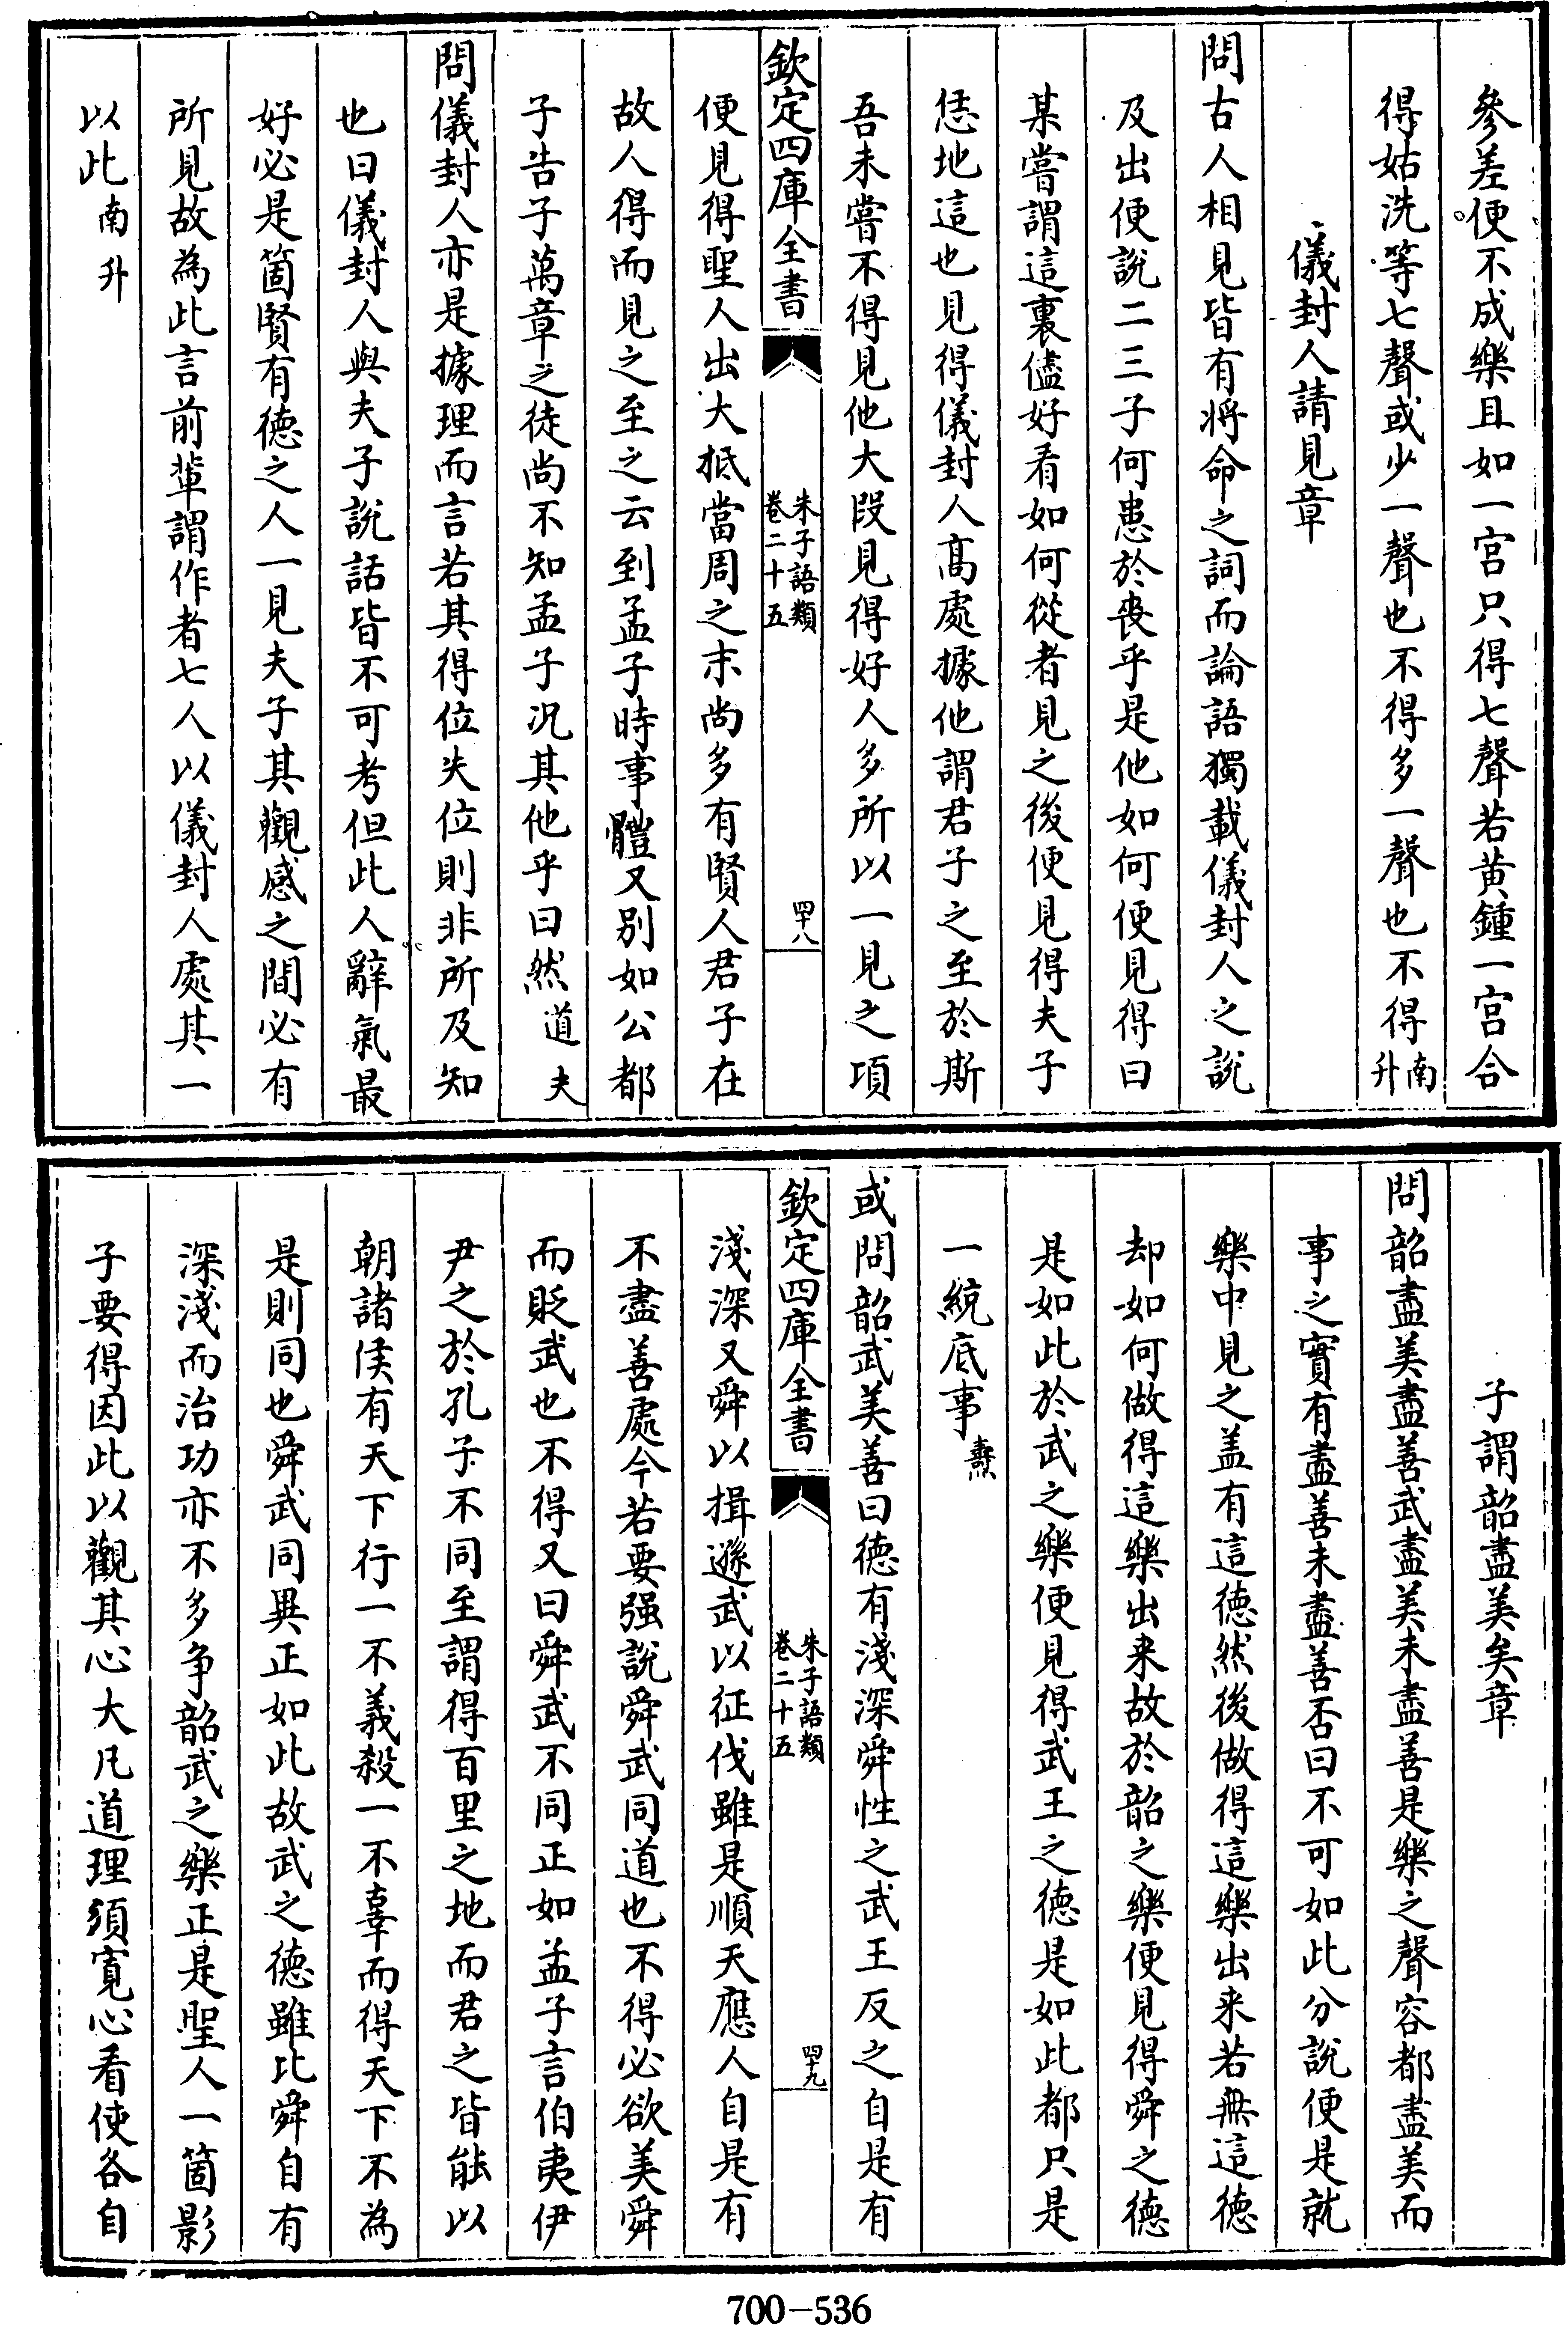 參差便不成樂且如一宮只得七聲若黃鍾一宮合
得姑洗等七聲或少一聲也不得多一聲也不得南升
儀封人請見章
問古人相見皆有將命之詞而論語獨載儀封人之說
及出便說二三子何患於喪乎是他如何便見得曰
某嘗謂這裏儘好看如何從者見之後便見得夫子
恁地這也見得儀封人髙處據他謂君子之至於斯
吾未嘗不得見他大段見得好人多所以一見之項
欽定四庫全書
朱子語類
卷二十五
四十八
便見得聖人出大抵當周之末尚多有賢人君子在
故人得而見之至之云到孟子時事體又别如公都
子告子萬章之徒尚不知孟子況其他乎曰然道夫
問儀封人亦是據理而言若其得位失位則非所及知
也曰儀封人與夫子說話皆不可考但此人辭氣最
好必是箇賢有徳之人一見夫子其觀感之間必有
所見故為此言前輩謂作者七人以儀封人處其一
以此南升
子謂韶盡美矣章
問韶盡美盡善武盡美未盡善是樂之聲容都盡美而
事之實有盡善未盡善否曰不可如此分說便是就
樂中見之盖有這徳然後做得這樂出来若無這徳
却如何做得這樂出来故於韶之樂便見得舜之徳
是如此於武之樂便見得武王之徳是如此都只是
一統底事燾
或問韶武美善曰徳有淺深舜性之武王反之自是有
欽定四庫全書
朱子語類
卷二十五
四十九
淺深又舜以揖遜武以征伐雖是順天應人自是有
不盡善處今若要强說舜武同道也不得必欲美舜
而貶武也不得又曰舜武不同正如孟子言伯夷伊
尹之於孔子不同至謂得百里之地而君之皆能以
朝諸侯有天下行一不義殺一不辜而得天下不為
是則同也舜武同異正如此故武之徳雖比舜自有
深淺而治功亦不多争韶武之樂正是聖人一箇影
子要得因此以觀其心大凡道理須寛心看使各自
700-536